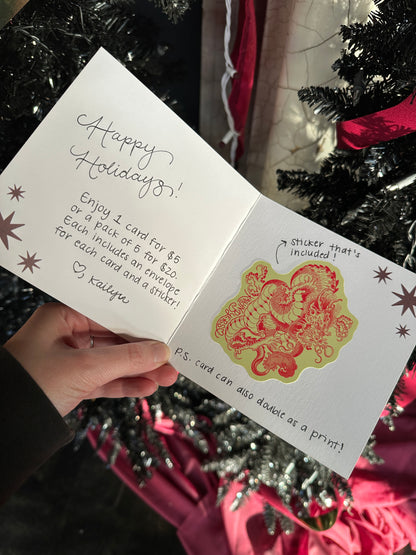 Happy
Holidays!
Enjoy 1 card for $5
or a pack of 5 for $20.
Each includes an envelope
for each card and a sticker!
♡ Kailyn
sticker that's
included!
P.S. card can also double as a print!